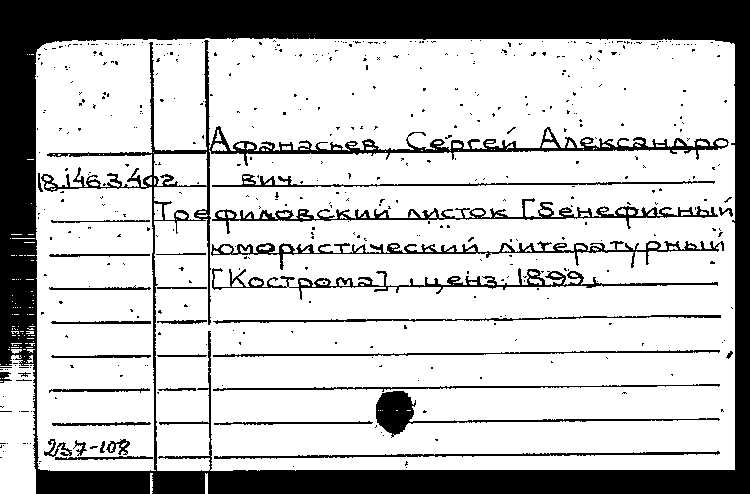 Афанасьев, Сергей Александро-
18.146.3.402 вич.
Трефиловский листок [Бенефисный
юмористический, литературный
[Кострома], ценз. 1899.
237-108